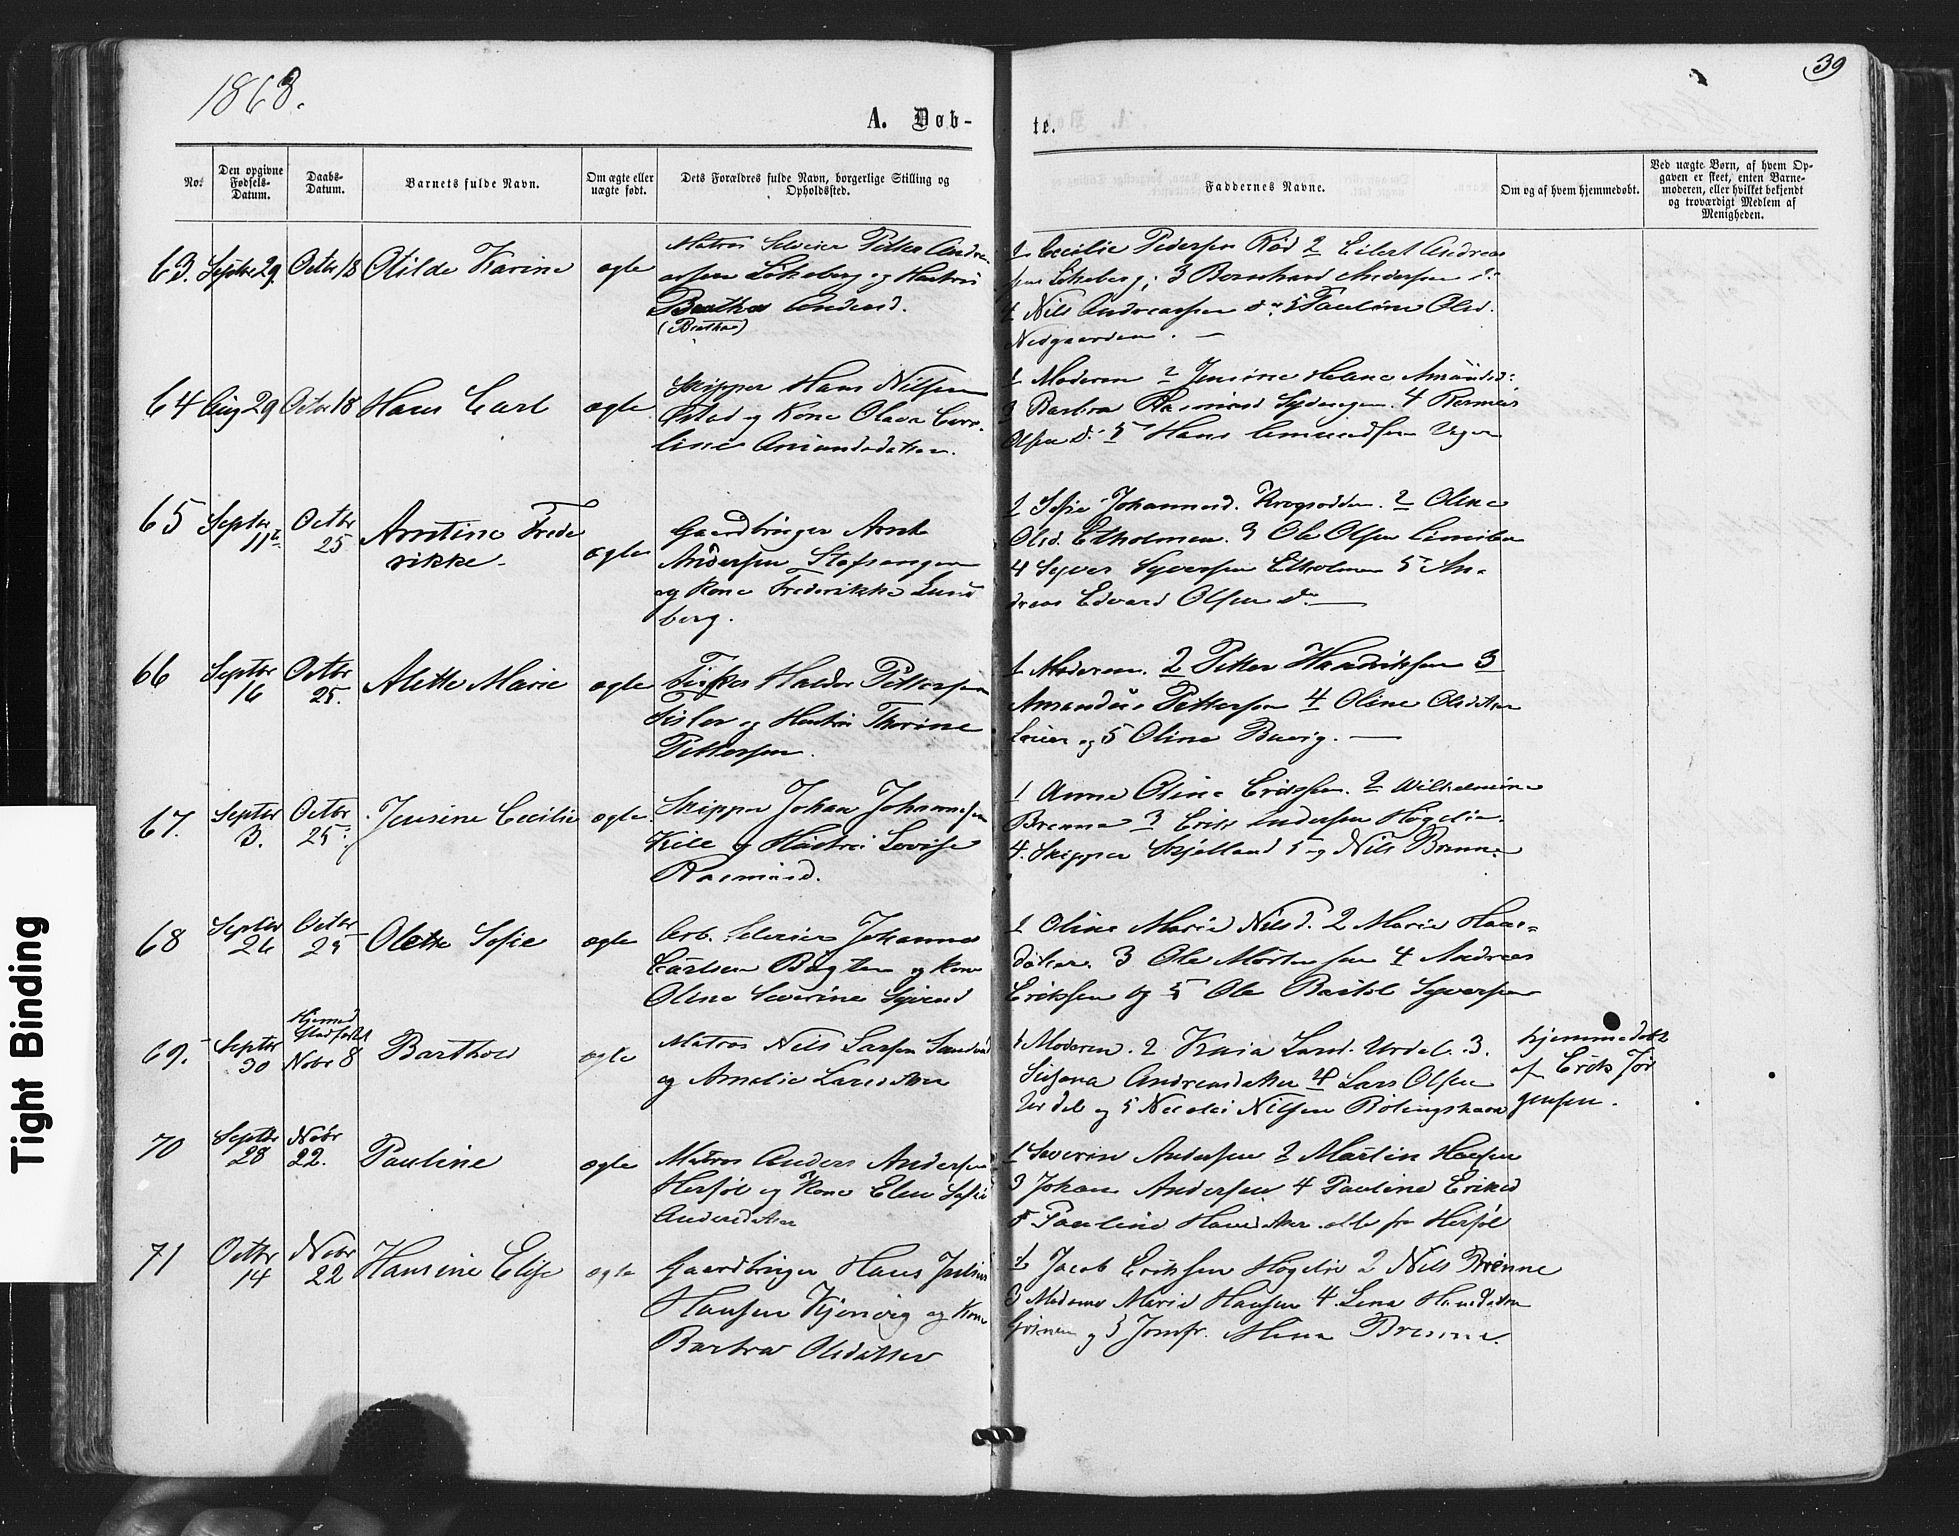 1868.
39
A. Døb-
te.
No.
Den opgivne Fødsels-Datum.
Daabs-Datum.
Barnets fulde Navn.
Om ægte eller uægte født.
Dets Forældres fulde Navn, borgerlige Stilling og Opholdssted.
Faddernes Navne.
Om og af hvem hjemmedøbt.
Ved uægte Børn, af hvem Opgaven er skeet, enten Barnemoderen, eller hvilket bekjendt og troværdigt Medlem af Menigheden.
63. Septbr 29. Octbr 18 Otilde Karine ægte
Matros Petter Andre-
assen Løkeberg og Hustru
Beathe Andersd.
(Beathe)
1 Cecilie Pedersen Rød 2 Eilert Andreas
sen Løkeberg; 3 Bernhard Andersen do
4 Nils Andreassen do 5 Pauline Olsd.
Nedgaarden. —
64 Aug 29 Octbr 18 Hans Carl ægte
Skipper Hans Nilsen
og Kone Olava Caro-
line Amundsdatter.
1 Moderen 2 Jensine Helene Amunds:
3 Barbra Rasmusd 4 Rasmus
Olsen do 5 Hans Amundsen
65 Septbr 11te Octbr 25 Arntine Frede
rikke. ægte
Gaardbruger Arnt
Andersen
og Kone Frederikke Lund
berg.
1 Sofie Johannesd. 2 Oline
Olsd. Etholmen. 3 Ole Olsen
4 Syver Syversen Etholmen 5 An-
dreas Edvard Olsen do —
66 Septbr 16 Octbr 25. Alette Marie ægte
Fisker Halvor Pettersen
og Hustru Thorine
Pettersen.
1 Moderen. 2 Petter Hendriksen 3
Amandus Pettersen 4 Oline Olsdatter
og 5 Oline Buvig. —
67. Septbr 3. Octbr 25: Jensine Cecilie ægte.
Skipper Johan Johannesen
Kile og Hustru Lovise
Rasmusd.
1 Anne Oline Eriksen. 2 Wilhelmine
Brenne 3 Erik Andersen Høgelie.
4. Skipper Skjelland 5 og Nils Brenne
68 Septbr 26 Octbr 25 Olette Sofie ægte
Arb. Johannes
Carlsen og Kone
Oline Severine
1 Oline Marie Nilsd. 2 Marie Hans-
datter. 3 Ole Mortensen 4 Andreas
Eriksen og 5 Ole Syversen
69. Septbr 30 Hjemmed
Nobr 8 Barthol ægte
Matros Nils Larsen
og Amalie Larsdatter
1 Moderen. 2 Kaia Urdal. 3.
Susana Andreasdatter 4 Lars Olsen
Urdal og 5 Nicolai Nilsen
hjemmedøbt
af Erik Jør
gensen.
70 Septbr 28 Nobr 22. Pauline ægte
Matros Anders Andersen
Herføl og Kone Elen Sofie
Andersdatter
1 Severin Andersen 2 Martin Hansen
3 Johan Andersen 4 Pauline Eriksd
5 Pauline Hansdatter alle fra Herføl
71 Octbr 14 Nobr 22 Hansine Elise ægte
Gaardbruger Hans Julius
Hansen Kjønvig og Kone
Barbra Olsdatter
1 Jacob Eriksen Høgelie 2 Nils Brenne
3 Madame Marie Hansen 4. Lena Hansdatter
og 5 Jomfr. Mina Brenne.
Tight Binding